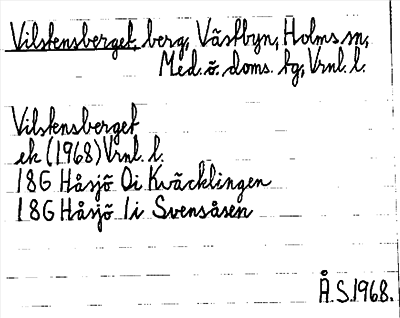 Vilstensberget, berg, Västbyn, Holms sn,
Med. ö. doms. tg, Vrnl. l.
Vilstensberget
ek (1968) Vrnl. l.
18G Håsjö 0i Kväcklingen
18G Håsjö 1i Svensåsen
Å.S. 1968.